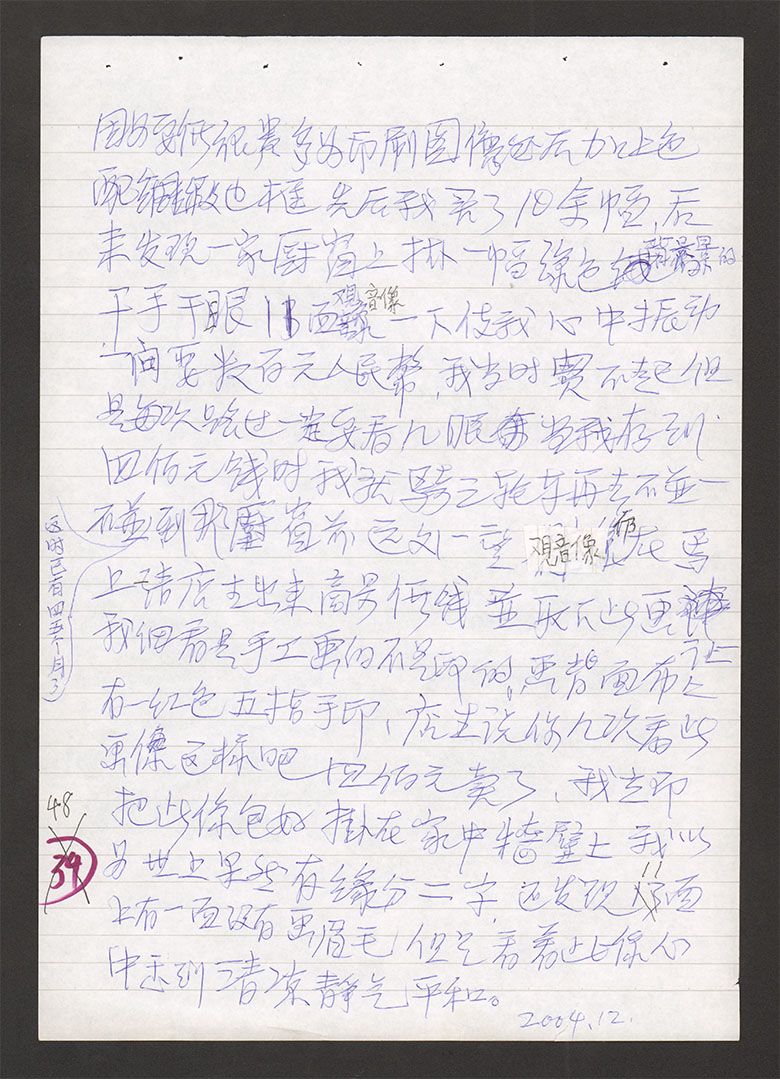 因为要价很贵多为印刷图像然后加上色
配绸缎边框 先后我买了10余幅,后
来发现一家厨窗上挂一幅绿色背景的
千手千眼11面観音像一下使我心中振动
一问要数百元人民幣,我当时買不起但
是每次路过一定要看几眼 当我存到
四佰元钱时我就骑三轮车再去不並一
不並到那厨窗前远又一望観音像仍在馬
上请店主出来商另价钱並取下此画
我细看是手工画的不是印的,画背面布上
有一红色五指手印、店主说你几次看此
画像这样吧 四佰元卖了、我立即
把此像包好 掛在家中牆壁上 我以
为世上果然有缘分二字,还发现11面
上有一面没有画眉毛 但是看着此像心
中感到清凉静气平和。
2004.12.
这时已有四五个月了
48
39